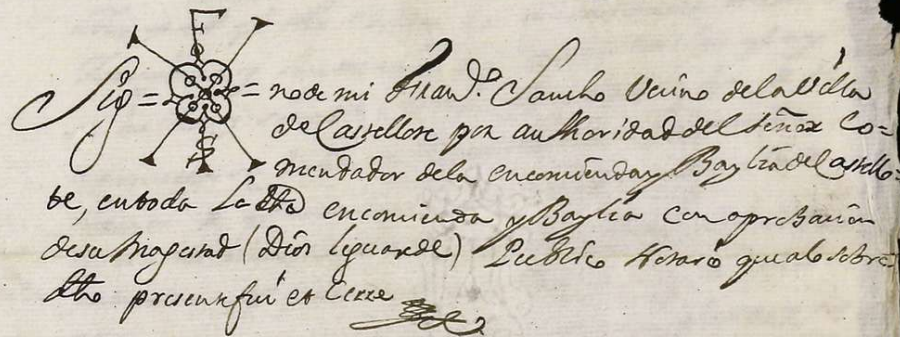 Sig = = no de mi Fran.do Sancho Vecino de la Villa
de Castellote por authoridad del Señor Co=
mendador de la encomienda y Baylia de Castello=
te, en toda La dha encomienda y Baylia con aprobacion
de su Magestad (Dios le guarde) Publico Notario que a lo sobre
dho presente fui et Cerre